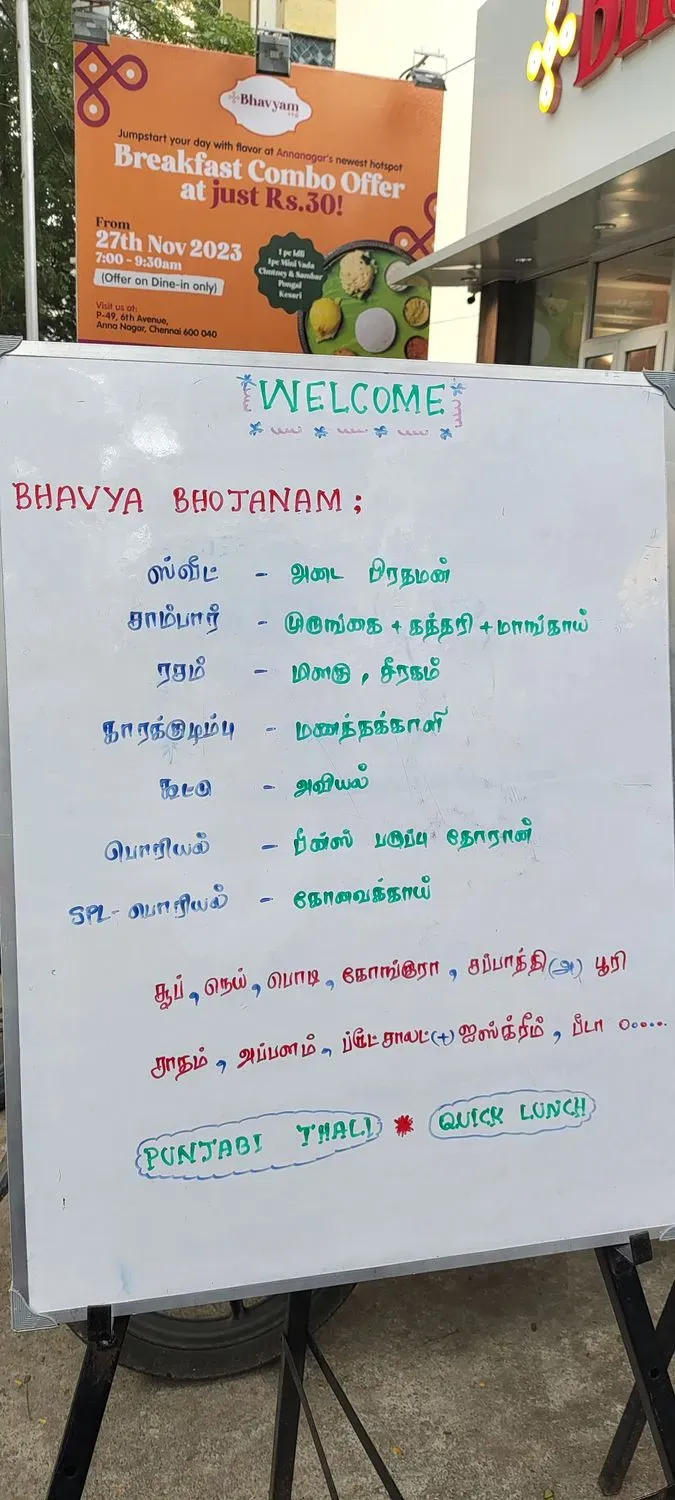 Bhavyam
Jumpstart your day with flavor at Annanagar's newest hotspot
Breakfast Combo Offer
at just Rs.30!
From
27th Nov 2023
7:00 - 9:30am
(Offer on Dine-in only)
1 pc Idli
1pc Mini Vada
Chutney & Sambar
Pongal
Kesari
Visit us at:
P-49, 6th Avenue,
Anna Nagar, Chennai 600 040
WELCOME
BHAVYA BHOJANAM ;
ஸ்வீட் - அடை பிரதமன்
சாம்பார் - முருங்கை + கத்தரி + மாங்காய்
ரசம் - மிளகு , சீரகம்
காரக்குழம்பு - மணத்தக்காளி
கூட்டு - அவியல்
பொரியல் - பீன்ஸ் பருப்பு தோரான்
SPL- பொரியல் - கோவைக்காய்
சூப் , நெய் , பொடி , கோங்குரா , சப்பாத்தி (அ) பூரி
சாதம் , அப்பளம் , ப்ரூட் சாலட் (+) ஐஸ்க்ரீம் , பீடா
PUNJABI THALI * QUICK LUNCH